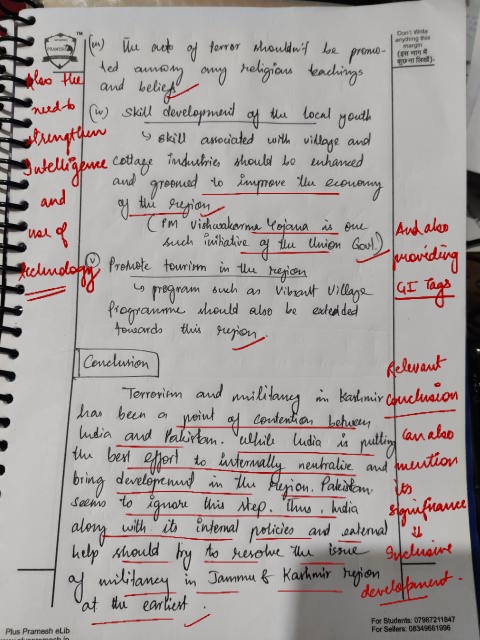 Don't Write
anything this
margin
(इस भाग में
कुछ ना लिखें)
(iii) The acts of terror shouldn't be promo-
ted among any religious teachings
and beliefs
Also the
need to
strengthen
Intelligence
and
use of
technology
(iv) Skill development of the local youth
↳ skill associated with village and
cottage industries should be enhanced
and groomed to improve the economy
of the region
(PM Vishwakarma Yojana is one
such initiative of the Union Govt.)
And also
providing
GI Tags
(v) Promote tourism in the region
↳ program such as Vibrant Village
Programme should also be extended
towards this region.
Conclusion
Terrorism and militancy in Kashmir
has been a point of contention between
India and Pakistan. While India is putting
the best effort to internally neutralise and
bring development in the region. Pakistan
seems to ignore this step. Thus, India
along with its internal policies and external
help should try to resolve the issue
of militancy in Jammu & Kashmir region
at the earliest.
Relevant
conclusion
Can also
mention
its
significance
⇓
Inclusive
development.
Plus Pramesh eLib
For Students: 07987211847
For Sellers: 08349661996